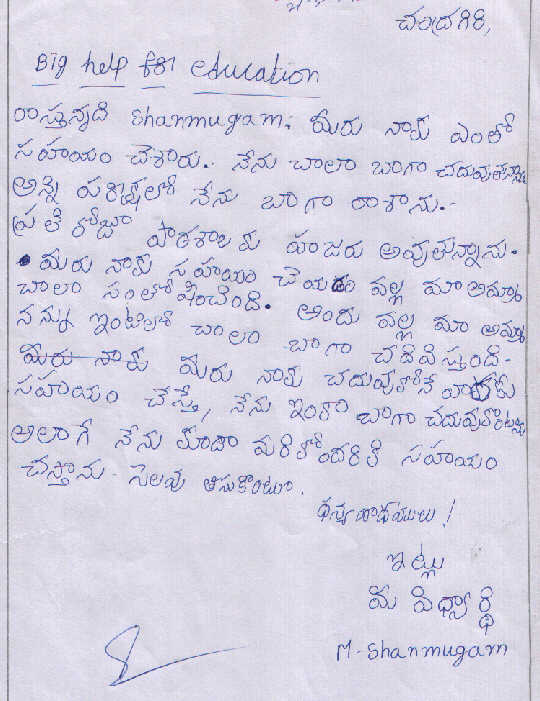 చంద్రగిరి,
Big help for education
రాస్తున్నది Shanmugam. మీరు నాకు ఎంతో
సహాయం చేశారు.. నేను చాలా బాగా చదువుతున్నాను
అన్ని పరీక్షలలో నేను బాగా రాశాను.-
ప్రతి రోజూ పాఠశాలకు హాజరు అవుతున్నాను.
మీరు నాకు సహాయం చేయడం వల్ల మా అమ్మా
చాలా సంతోషించింది. అందు వల్ల మా అమ్మా
నన్ను ఇంటిలో చాలా బాగా చదివిస్తుంది.
మీరు నాకు మీరు నాకు చదువులోనే
సహాయం చేస్తే, నేను ఇంకా బాగా
అలాగే నేను కూడా మరికొందరికి సహాయం
చేస్తాను. సెలవు తీసుకొంటూ.
ధన్యవాదములు!
ఇట్లు
మీ విద్యార్థి
M. Shanmugam